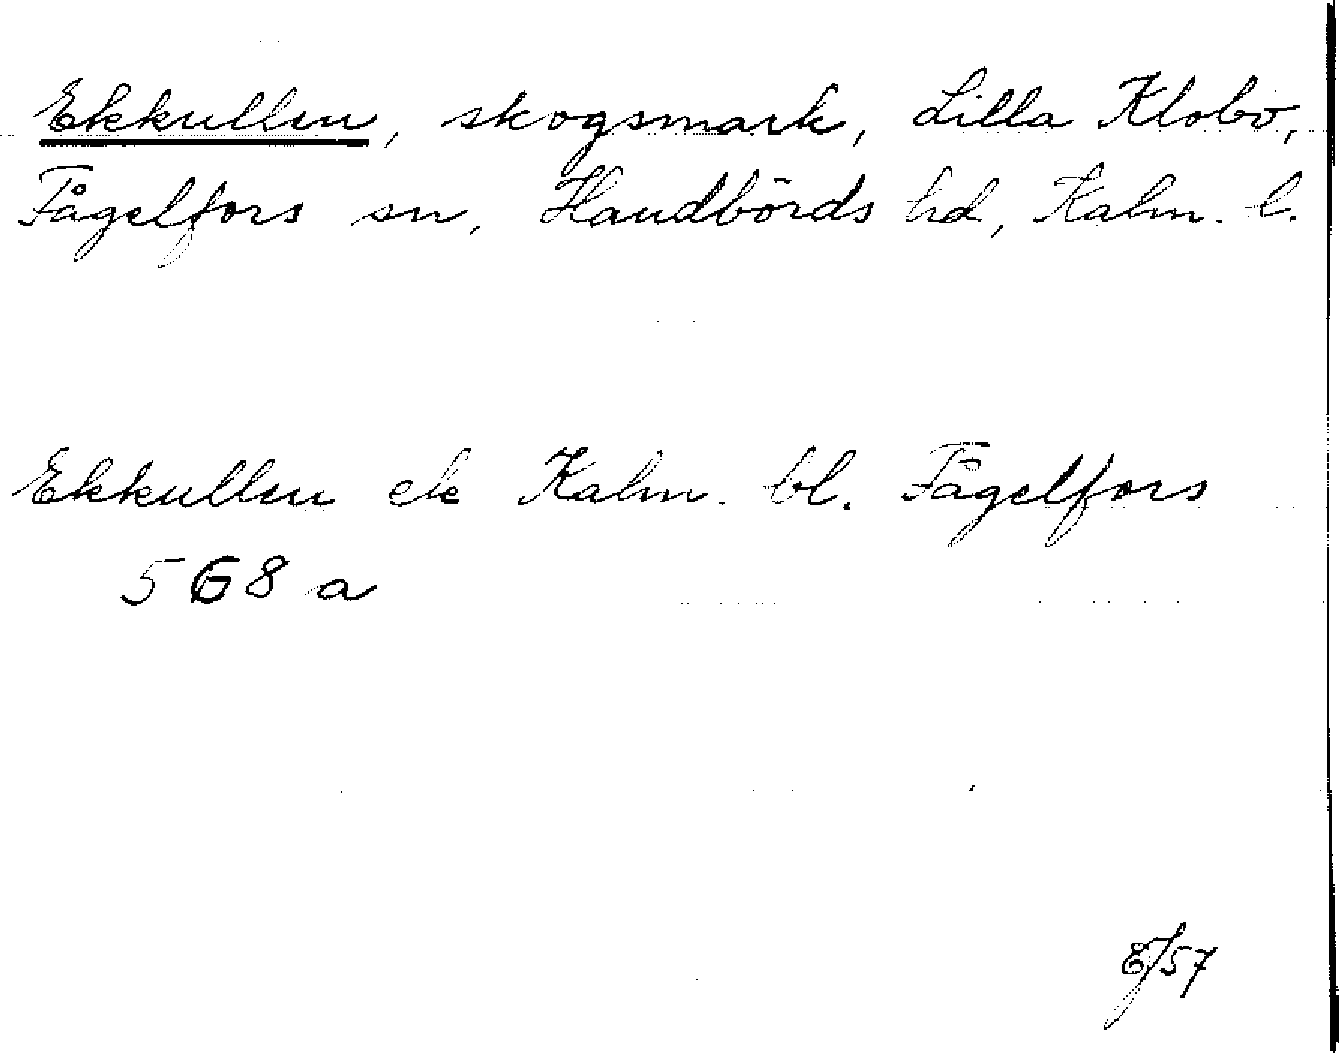 Ekkullen, skogsmark, Lilla Klobo,
Fågelfors sn, Handbörds hd, Kalm. l.
Ekkullen ek Kalm. bl. Fågelfors
568 a